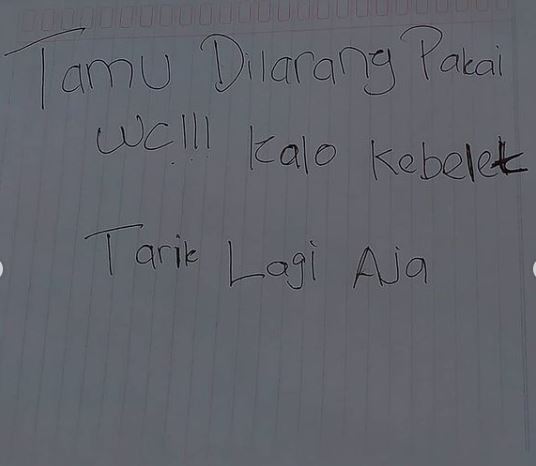 Tamu Dilarang Pakai
WC!!! Kalo Kebelet
Tarik Lagi Aja